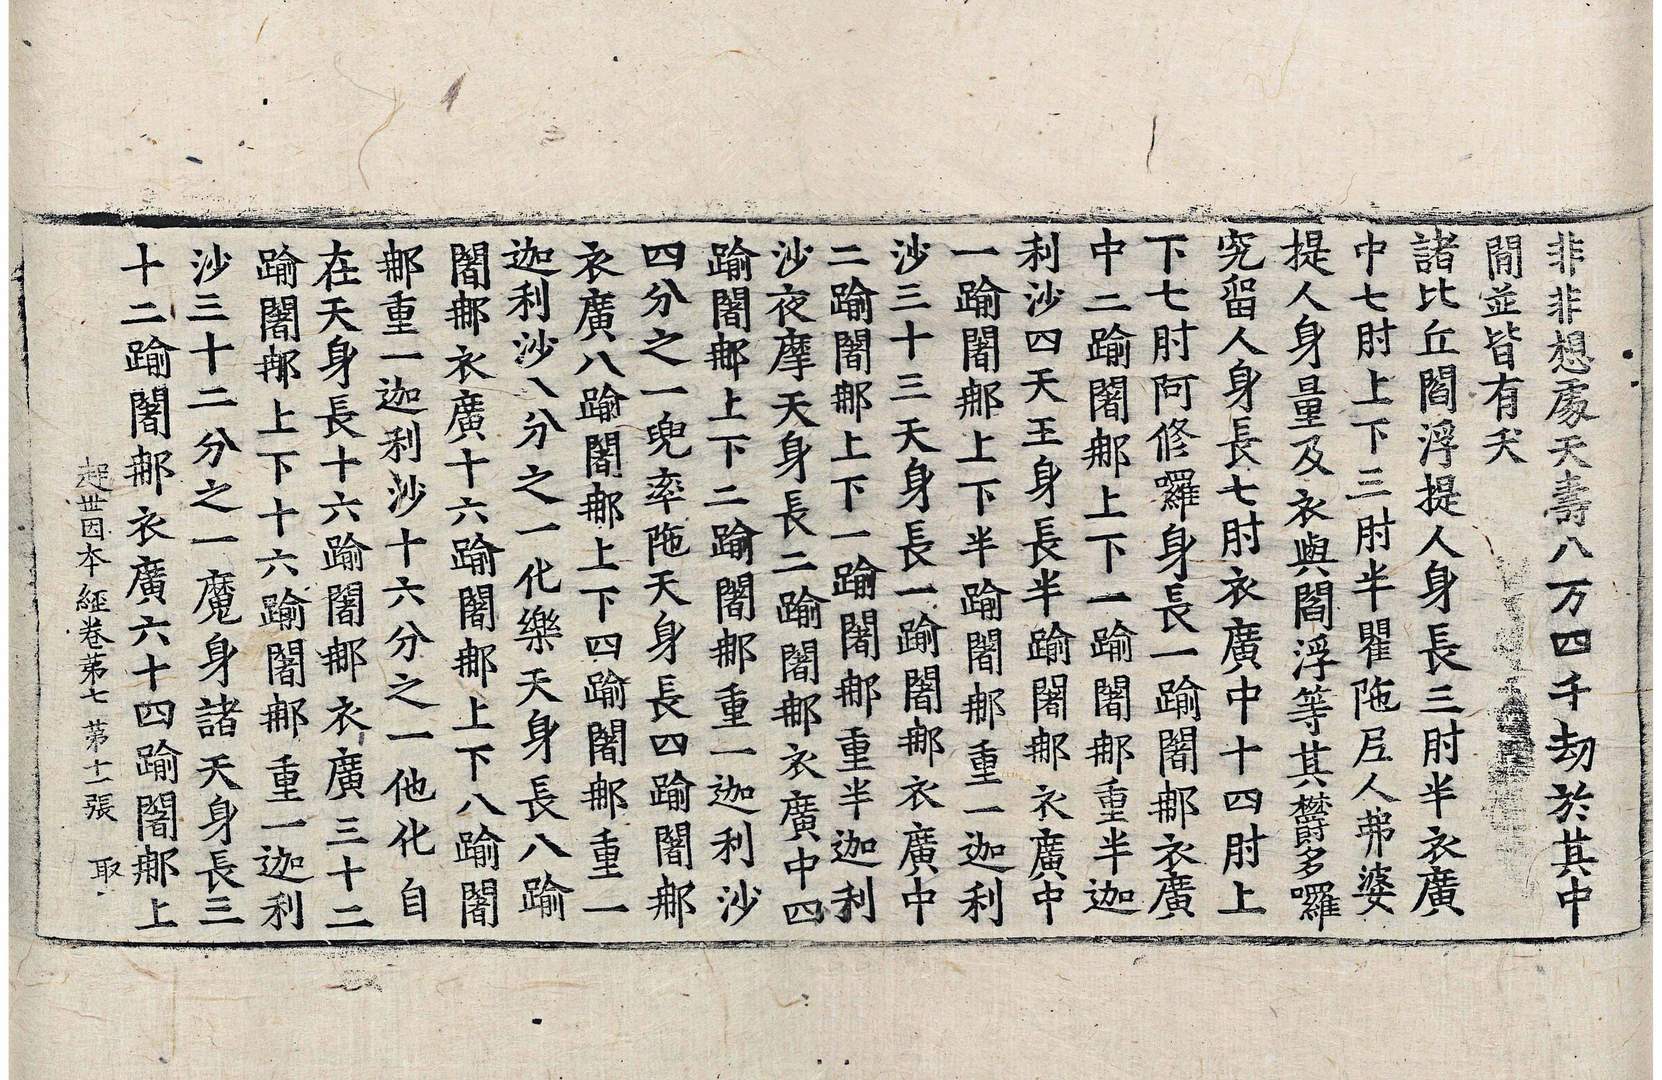 非非想處天壽八万四千劫於其中
間並皆有夭
諸比丘閻浮提人身長三肘半衣廣
中七肘上下三肘半瞿陁尼人弗婆
提人身量及衣與閻浮等其欝多囉
究留人身長七肘衣廣中十四肘上
下七肘阿修羅身長一踰闍郍衣廣
中二踰闍郍上下一踰闍郍重半迦
利沙四天王身長半踰闍郍衣廣中
一踰闍郍上下半踰闍郍重一迦利
沙三十三天身長一踰闍郍衣廣中
二踰闍郍上下一踰闍郍重半迦利
沙夜摩天身長二踰闍郍衣廣中四
踰闍郍上下二踰闍郍重一迦利沙
四分之一兜率陁天身長四踰闍郍
衣廣八踰闍郍上下四踰闍郍重一
迦利沙八分之一化樂天身長八踰
闍郍衣廣十六踰闍郍上下八踰闍
郍重一迦利沙十六分之一他化自
在天身長十六踰闍郍衣廣三十二
踰闍郍上下十六踰闍郍重一迦利
沙三十二分之一魔身諸天身長三
十二踰闍郍衣廣六十四踰闍郍上
起世因本經卷第七 第十一張 取